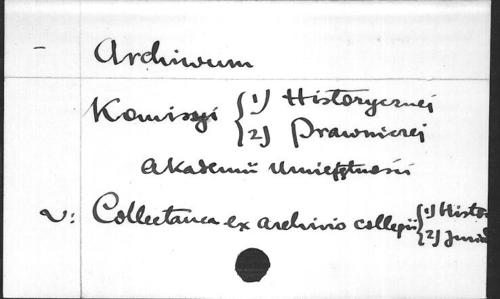 — Archiwum
Komissyi { 1) Historycznej
{ 2) Prawniczej
Akademii Umiejętności
v: Collectanea ex archivio collegii { 1) Histo
{ 2) Juri